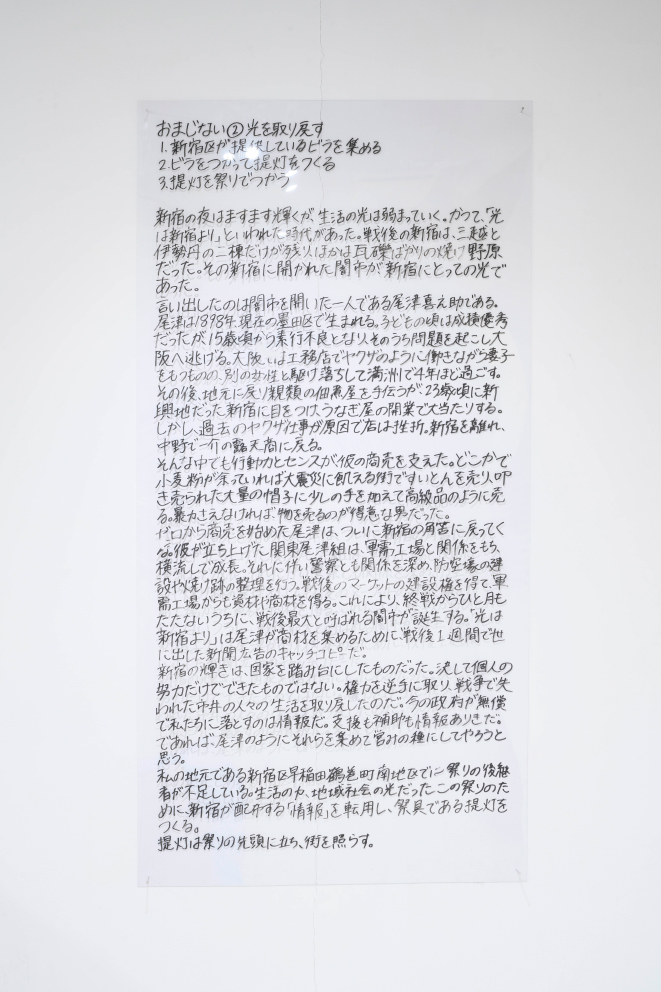 おまじない②光を取り戻す
1.新宿区が提供しているビラを集める
2.ビラをつかって提灯をつくる
3.提灯を祭りでつかう
新宿の夜はますます輝くが、生活の光は弱まっていく。かつて、「光
は新宿より」といわれた時代があった。戦後の新宿は、三越と
伊勢丹の二棟だけが残り、ほかは瓦礫ばかりの焼け野原
だった。その新宿に開かれた闇市が新宿にとっての光で
あった。
言い出したのは闇市を開いた一人である尾津喜之助である。
尾津は1898年、現在の墨田区で生まれる。子どもの頃は成績優秀
だったが、15歳頃から素行不良となり、そのうち問題を起こし大
阪へ逃げる。大阪では工務店でヤクザのように働きながら妻子
をもつものの、別の女性と駆け落ちして満洲で4年ほど過ごす。
その後、地元に戻り親類の佃煮屋を手伝うが、23歳頃に新
興地だった新宿に目をつけ、うなぎ屋の開業で大当たりする。
しかし、過去のヤクザ仕事が原因で店は挫折。新宿を離れ、
中野で一介の露天商に戻る。
そんな中でも行動力とセンスが彼の商売を支えた。どこかで
小麦粉が余っていれば大震災に飢える街ですいとんを売り、叩
き売られた大量の帽子に少しの手を加えて高級品のように売
る。暴力さえなければ、物を売るのが得意な男だった。
ゼロから商売を始めた尾津は、ついに新宿の角筈に戻ってく
る。彼が立ち上げた関東尾津組は、軍需工場と関係をもち、
横流しで成長。それに伴い警察とも関係を深め、防空壕の建
設や焼け跡の整理を行う。戦後のマーケットの建設権を得て、軍
需工場からも資材や商材を得る。これにより、終戦からひと月も
たたないうちに、戦後最大と呼ばれる闇市が誕生する。「光は
新宿より」は尾津が商材を集めるために、戦後1週間で世
に出した新聞広告のキャッチコピーだ。
新宿の輝きは、国家を踏み台にしたものだった。決して個人の
努力だけでできたものではない。権力を逆手に取り、戦争で失
われた市井の人々の生活を取り戻したのだ。今の政府が無償
で私たちに落とすのは情報だ。支援も補助も情報ありきだ。
であれば、尾津のようにそれらを集めて営みの種にしてやろうと
思う。
私の地元である新宿区早稲田鶴巻町南地区では祭りの後継
者が不足している。生活の力、地域社会の光だったこの祭りのた
めに、新宿が配布する「情報」を転用し、祭具である提灯を
つくる。
提灯は祭りの先頭に立ち、街を照らす。